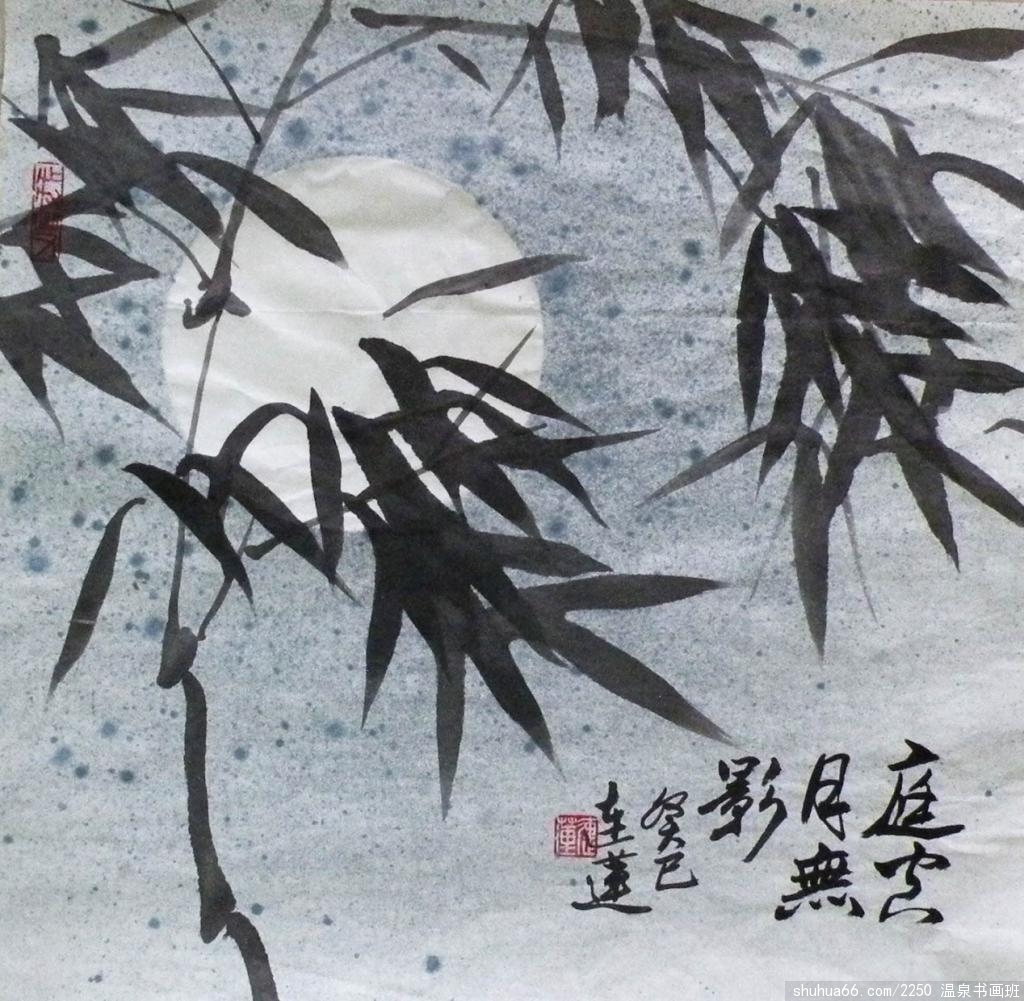 庭空
月無
影
癸巳
在蓮
shuhua66.com/2250 温泉书画班